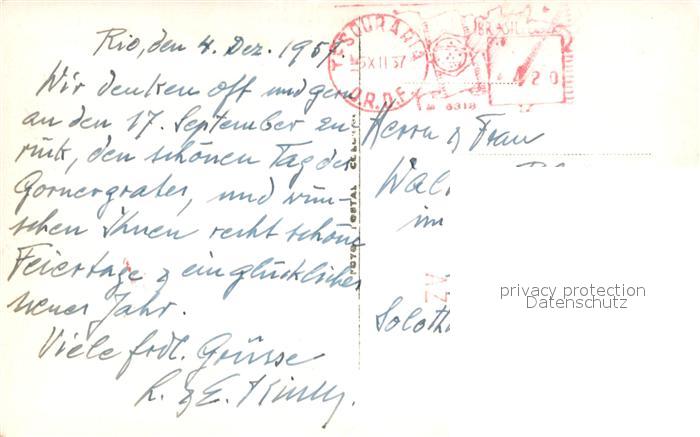 Rio, den 4. Dez. 1957.
Wir denken oft und gern
an den 17. September zu-
rück, den schönen Tag des
Gornergrates, und wün-
schen Ihnen recht schöne
Feiertage & ein glückliches
neues Jahr.
Viele frdl. Grüsse
L. & E.
TESOURARIA
XII 57
D.R.D.F.
BRASIL
20
FOTO POSTAL
Herrn & Frau
Wal
im
Soloth
privacy protection
Datenschutz